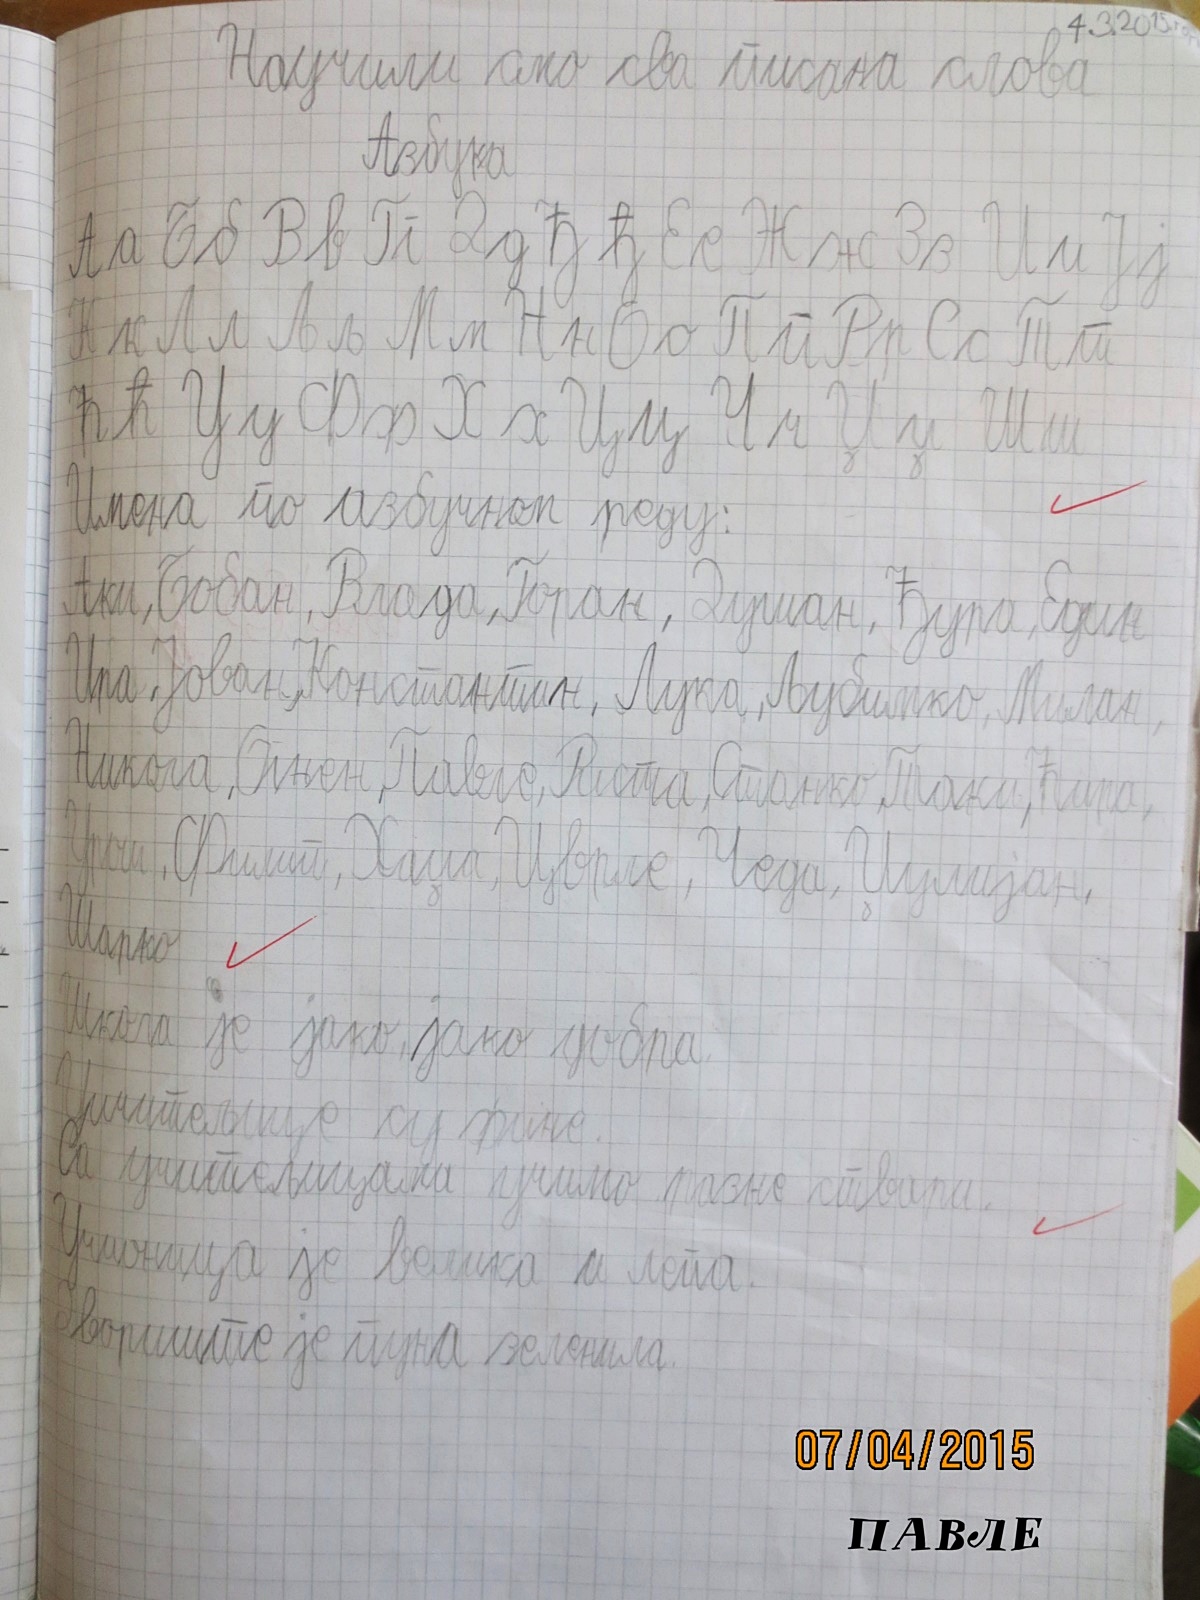 4.3.2015.год.
Научили смо сва писана слова
Азбука
Аа Бб Вв Гг Дд Ђђ Ее Жж Зз Ии Јј
Кк Лл Љљ Мм Нн Оо Пп Рр Сс Тт
Ћћ Уу Фф Хх Цц Чч Џџ Шш
Имена по азбучном реду:
Аки, Бобан, Влада, Горан, Душан, Ђура, Един
Ира, Јован, Константин, Лука, Љубинко, Милан,
Никола, Огњен, Павле, Ристa, Станко, Таки, Ћира,
Урош, Филип, Хаџи, Цврле, Чеда, Џулијан,
Шарко
Школа је јако, јако добра.
Учитељице су фине.
Са учитељицама учимо разне ствари.
Учионица је велика и лепа.
Двориште је пуна зеленила.
07/04/2015
ПАВЛЕ